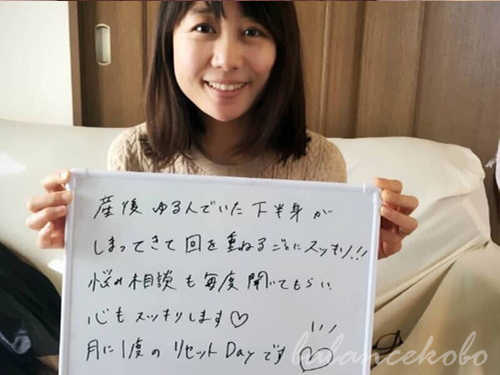 産後ゆるんでいた下半身が
しまってきて回を重ねるごとにスッキリ!!
悩み相談も毎度聞いてもらい
心もスッキリします♡
月に1度のリセットDayです♡
balancekobo